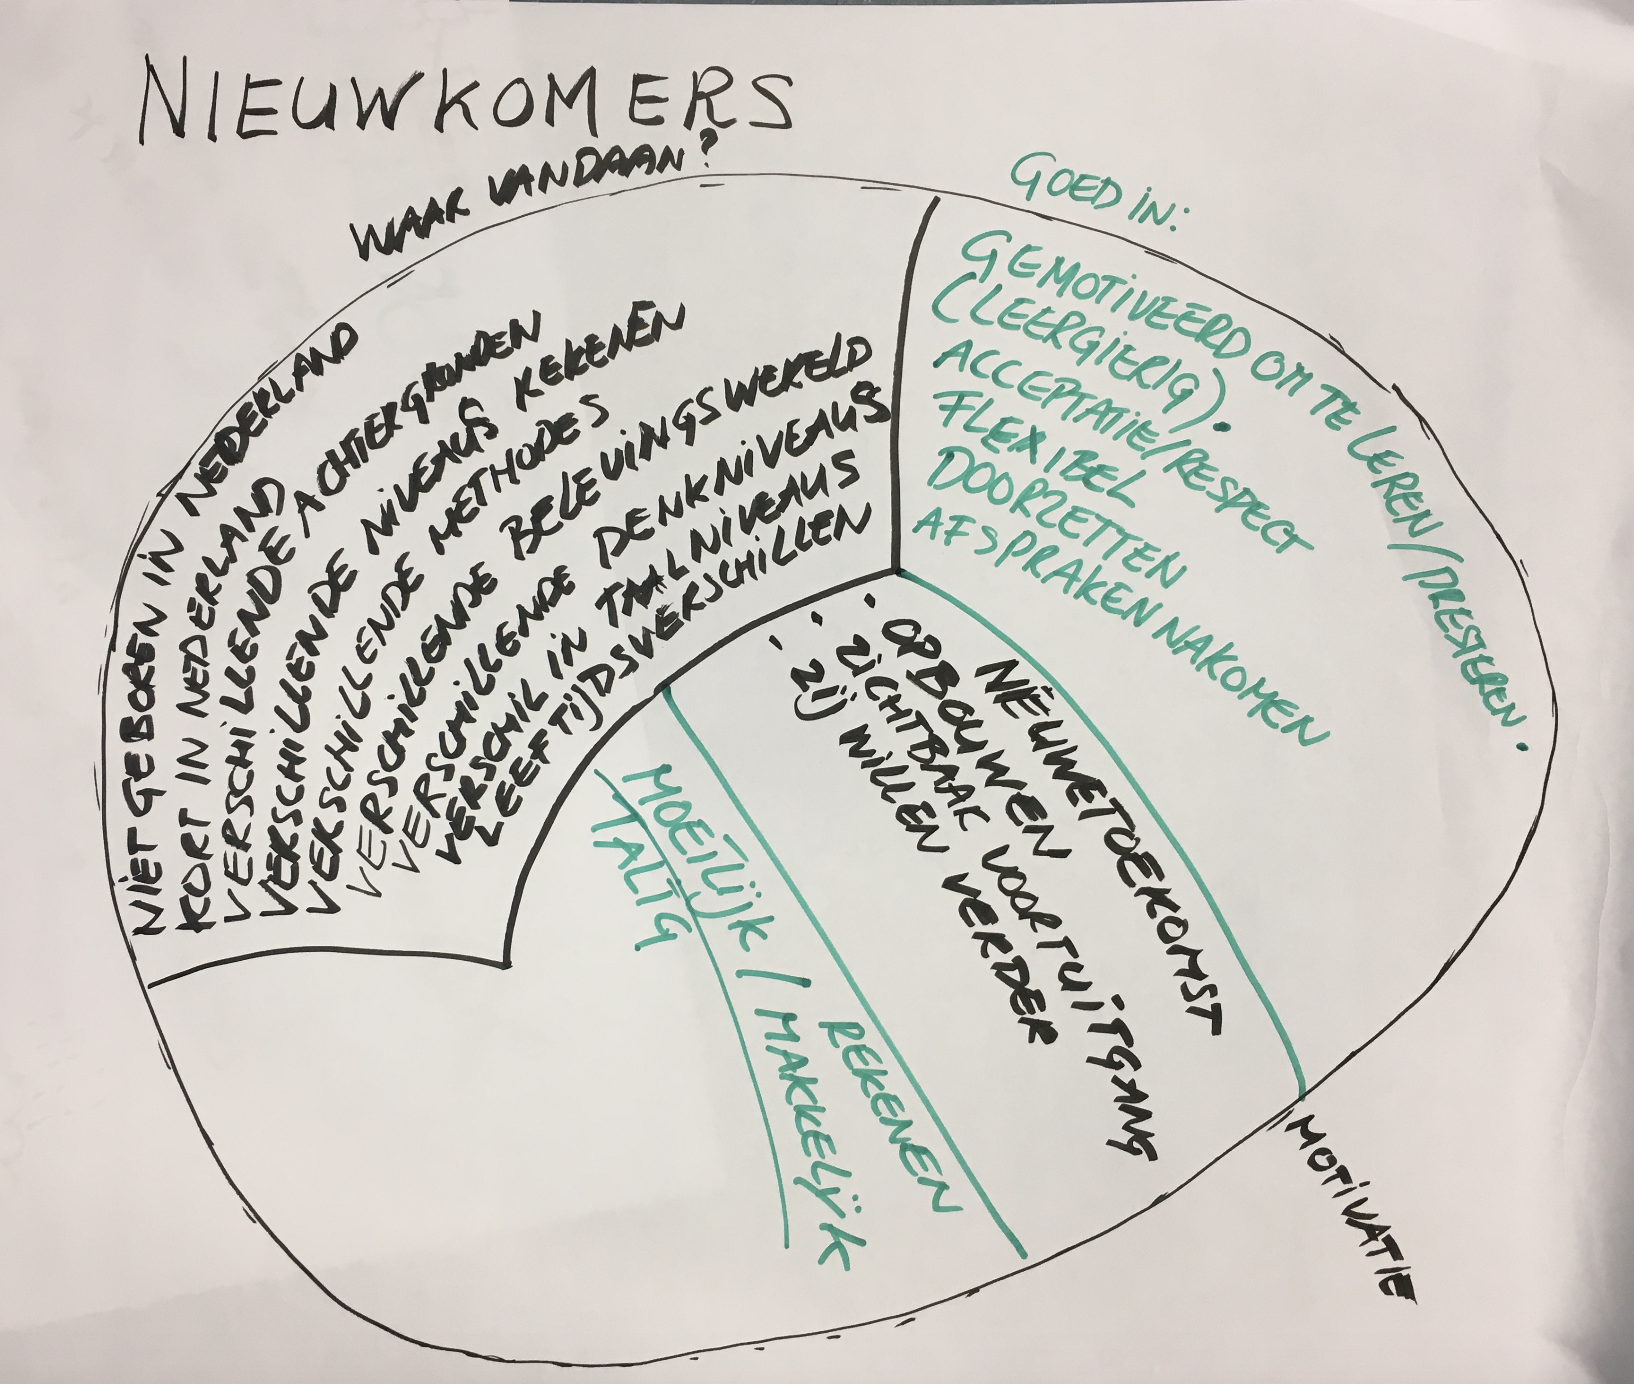 NIEUWKOMERS
WAAR VANDAAN?
NIET GEBOREN IN NEDERLAND
KORT IN NEDERLAND
VERSCHILLENDE ACHTERGRONDEN
VERSCHILLENDE NIVEAUS REKENEN
VERSCHILLENDE METHODES
VERSCHILLENDE BELEVINGSWERELD
VERSCHILLENDE DENKNIVEAUS
VERSCHIL IN TAALNIVEAUS
LEEFTIJDSVERSCHILLEN
GOED IN:
GEMOTIVEERD OM TE LEREN/PRESTEREN.
(LEERGIERIG).
ACCEPTATIE/RESPECT
FLEXIBEL
DOORZETTEN
AFSPRAKEN NAKOMEN
MOTIVATIE
NIEUWE TOEKOMST
· OPBOUWEN
· ZICHTBAAR VOORTUITGANG
· ZIJ WILLEN VERDER
REKENEN
MOEILIJK / MAKKELIJK
TALIG